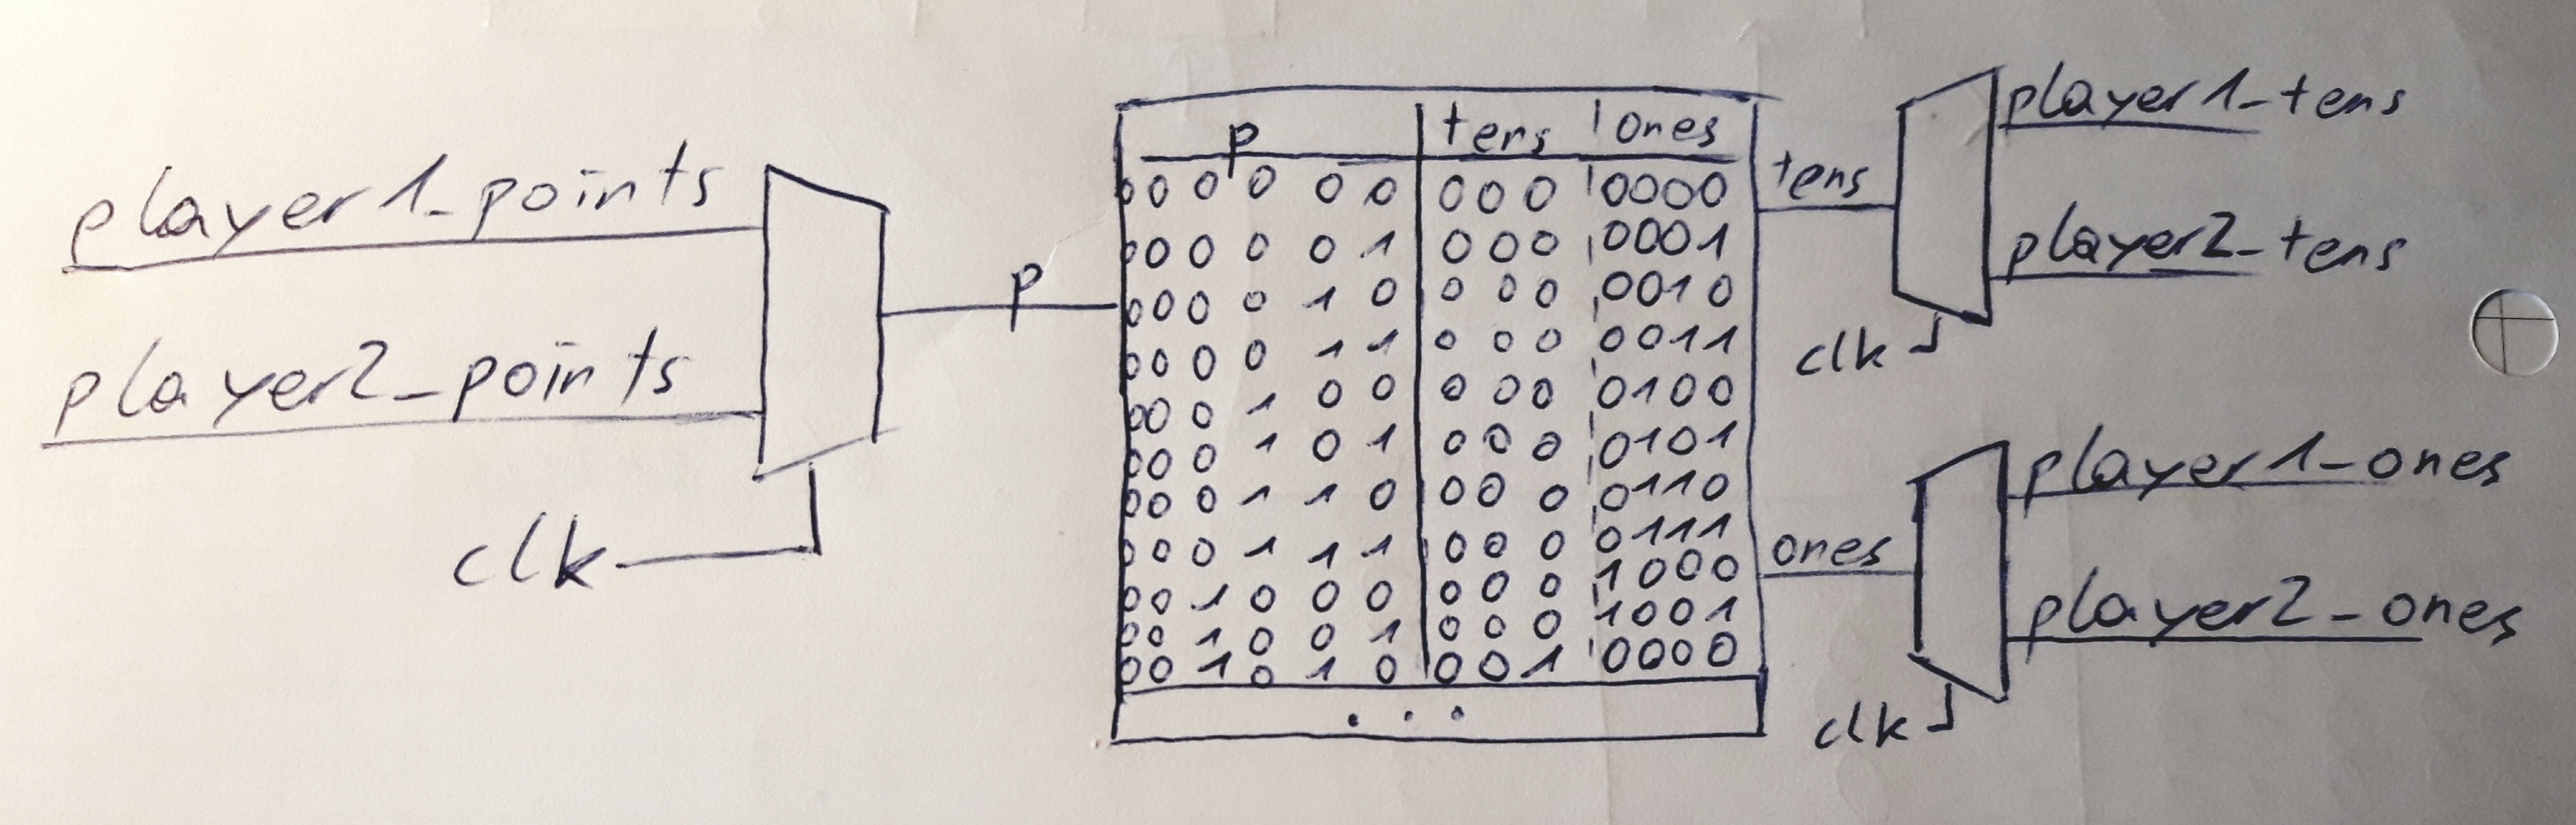 player1_points
player2_points
clk
p
p tens ones
000000 000 0000
000001 000 0001
000010 000 0010
000011 000 0011
000100 000 0100
000101 000 0101
000110 000 0110
000111 000 0111
001000 000 1000
001001 000 1001
001010 001 0000
. . .
tens
ones
player1_tens
player2_tens
clk
player1_ones
player2_ones
clk